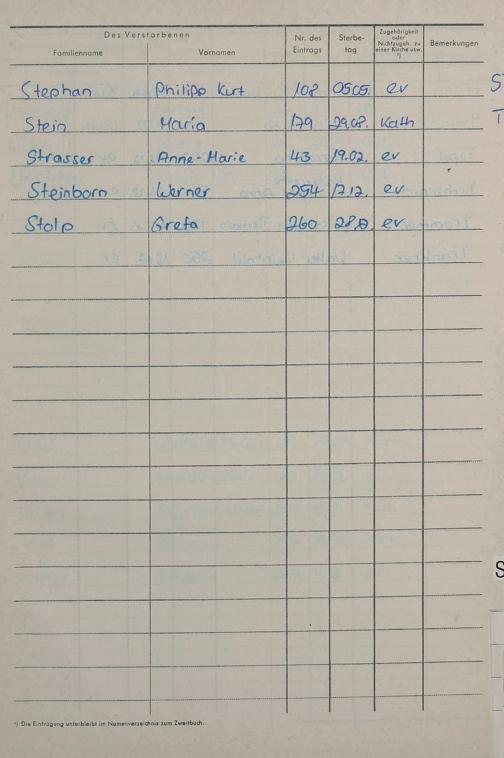 Des Verstorbenen
Familienname Vornamen Nr. des Eintrags Sterbe- tag Zugehörigkeit oder Nichtzugeh. zu einer Kirche usw. *) Bemerkungen
Stephan Philipp Kurt 108 0505. ev
Stein Maria 179 29.08. Kath
Strasser Anne-Marie 43 19.02. ev
Steinborn Werner 254 17.12. ev
Stolp Greta 260 ev
*) Die Eintragung unterbleibt im Namenverzeichnis zum Zweitbuch.